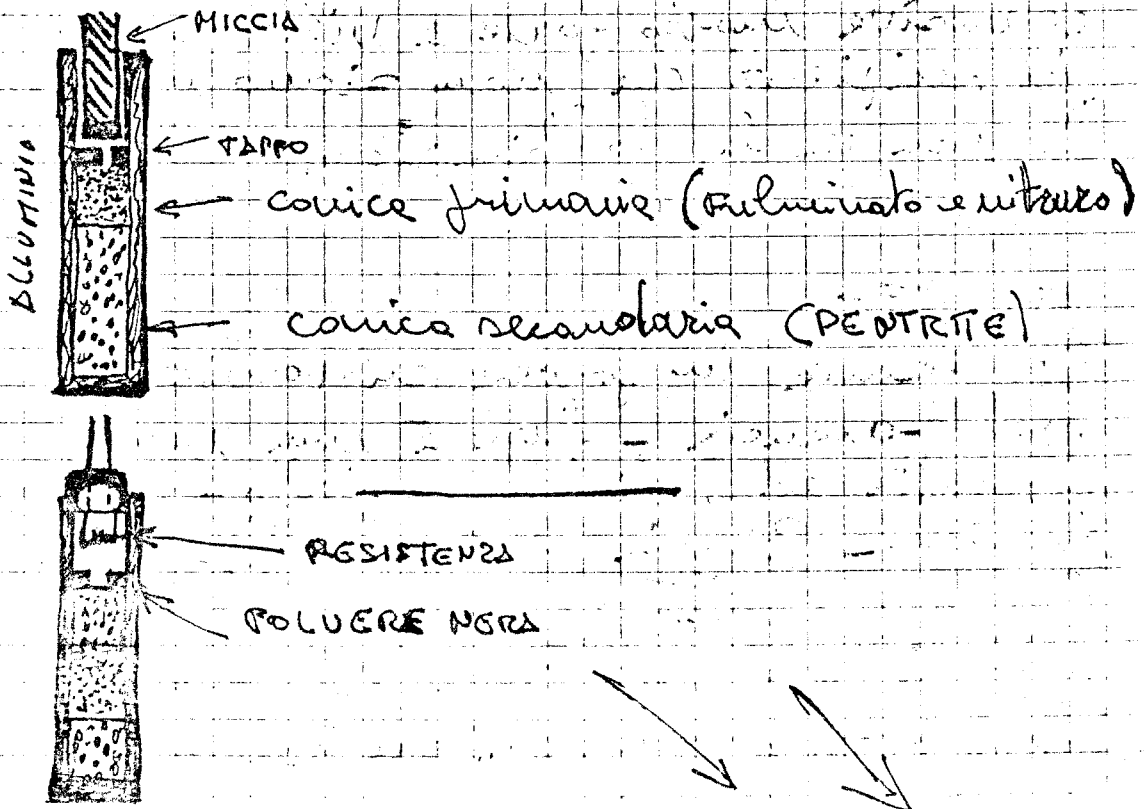 MICCIA
TAPPO
ALLUMINIO
carica primaria (fulminato e nitruro)
carica secondaria (PENTRITE)
RESISTENZA
POLVERE NERA